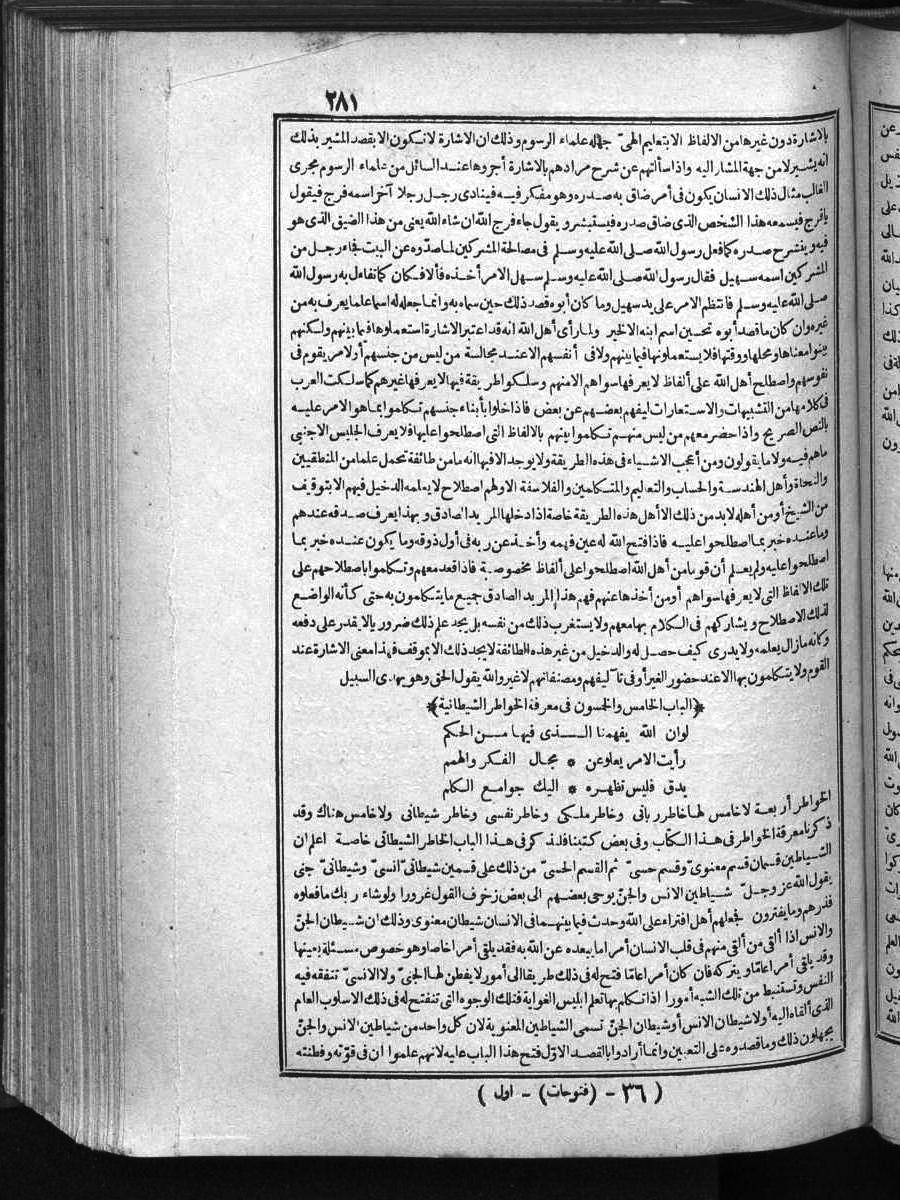 ٢٨١
بالاشارة دون غيرها من الالفاظ الا بتعليم الهىّ جهله علماء الرسوم وذلك ان الاشارة لا تكون الا بقصد المشير بذلك
انه يشير لا من جهة المشار اليه واذا سألتهم عن شرح مرادهم بالاشارة أجروها عند السائل من علماء الرسوم مجرى
الغالب مثال ذلك الانسان يكون فى أمر ضاق به صدره وهو مفكر فيه فينادى رجل رجلا آخر اسمه فرج فيقول
يا فرج فيسمعه هذا الشخص الذى ضاق صدره فيستبشر ويقول جاء فرج الله ان شاء الله يعنى من هذا الضيق الذى هو
فيه وينشرح صدره كما فعل رسول الله صلى الله عليه وسلم فى مصالحة المشركين لما صدّوه عن البيت فجاء رجل من
المشركين اسمه سهيل فقال رسول الله صلى الله عليه وسلم سهل الامر أخذه فألا فكان كما تفاءل به رسول الله
صلى الله عليه وسلم فانتظم الامر على يد سهيل وما كان أبوه قصد ذلك حين سماه به وانما جعله له اسما علما يعرف به من
غيره وان كان ما قصد أبوه تحسين اسم ابنه الا لخير ولما رأى أهل الله انه قد اعتبر الاشارة استعملوها فيما بينهم ولكنهم
بينوا معناها ومحلها ووقتها فلا يستعملونها فيما بينهم ولا فى أنفسهم الا عند مجالسة من ليس من جنسهم أو لامر يقوم فى
نفوسهم واصطلح أهل الله على ألفاظ لا يعرفها سواهم الا منهم وسلكوا طريقة فيها لا يعرفها غيرهم كما سلكت العرب
فى كلامها من التشبيهات والاستعارات ليفهم بعضهم عن بعض فاذا خلوا بأبناء جنسهم تكلموا بما هو الامر عليه
بالنص الصريح واذا حضر معهم من ليس منهم تكلموا بينهم بالالفاظ التى اصطلحوا عليها فلا يعرف الجليس الاجنبى
ما هم فيه ولا ما يقولون ومن أعجب الاشياء فى هذه الطريقة ولا يوجد الا فيها انه ما من طائفة تحمل علما من المنطقيين
والنحاة وأهل الهندسة والحساب والتعاليم والمتكلمين والفلاسفة الا ولهم اصطلاح لا يعلمه الدخيل فيهم الا بتوقيف
من الشيخ أو من أهله لا بد من ذلك الا أهل هذه الطريقة خاصة اذا دخلها المريد الصادق وبهذا يعرف صدقه عندهم
وما عنده خبر بما اصطلحوا عليه فاذا فتح الله له عين فهمه وأخذ عن ربه فى أول ذوقه وما يكون عنده خبر بما
اصطلحوا عليه ولم يعلم أن قوما من أهل الله اصطلحوا على ألفاظ مخصوصة فاذا قعد معهم وتكلموا باصطلاحهم على
تلك الالفاظ التى لا يعرفها سواهم أو من أخذها عنهم فهم هذا المريد الصادق جميع ما يتكلمون به حتى كأنه الواضع
لذلك الاصطلاح ويشاركهم فى الكلام بها معهم ولا يستغرب ذلك من نفسه بل يجد علم ذلك ضروريا لا يقدر على دفعه
وكانه ما زال يعلمه ولا يدرى كيف حصل له والدخيل من غير هذه الطائفة لا يجد ذلك الا بموقف فهذا معنى الاشارة عند
القوم ولا يتكلمون بها الا عند حضور الغير أو فى تآليفهم ومصنفاتهم لا غير والله يقول الحق وهو يهدى السبيل
﴿الباب الخامس والخمسون فى معرفة الخواطر الشيطانية﴾
لو ان الله يفهمنا الذى فيها من الحكم
رأيت الامر يعلو عن * مجال الفكر والهمم
يدق فليس تظهره * اليك جوامع الكلم
الخواطر أربعة لا خامس لها خاطر ربانى وخاطر ملكى وخاطر نفسى وخاطر شيطانى ولا خامس هناك وقد
ذكرنا معرفة الخواطر فى هذا الكتاب وفى بعض كتبنا فلنذكر فى هذا الباب الخاطر الشيطانى خاصة اعلم ان
الشياطين قسمان قسم معنوىّ وقسم حسىّ ثم القسم الحسىّ من ذلك على قسمين شيطانىّ انسىّ وشيطانىّ جنى
يقول الله عز وجلّ شياطين الانس والجنّ يوحى بعضهم الى بعض زخرف القول غرورا ولو شاء ربك ما فعلوه
فذرهم وما يفترون فجعلهم أهل افتراء على الله وحدث فيما بينهما فى الانسان شيطان معنوى وذلك ان شيطان الجنّ
والانس اذا ألقى من ألقى منهم فى قلب الانسان أمرا ما يبعده عن الله به فقد يلقى أمرا خاصا وهو خصوص مسئلة بعينها
وقد يلقى أمرا عامّا ويتركه فان كان أمرا عامّا فتح له فى ذلك طريقا الى أمور لا يفطن لها الجنىّ ولا الانسىّ تتفقه فيه
النفس وتستنبط من تلك الشبه أمورا اذا تكلم بها تعلم ابليس الغواية فتلك الوجوه التى تنفتح له فى ذلك الاسلوب العام
الذى ألقاه اليه أولا شيطان الانس أو شيطان الجنّ تسمى الشياطين المعنوية لان كل واحد من شياطين الانس والجنّ
يجهلون ذلك وما قصدوه على التعيين وانما أرادوا بالقصد الاوّل فتح هذا الباب عليه لانهم علموا ان فى قوّته وفطنته
( ٣٦ - (فتوحات) - اول )